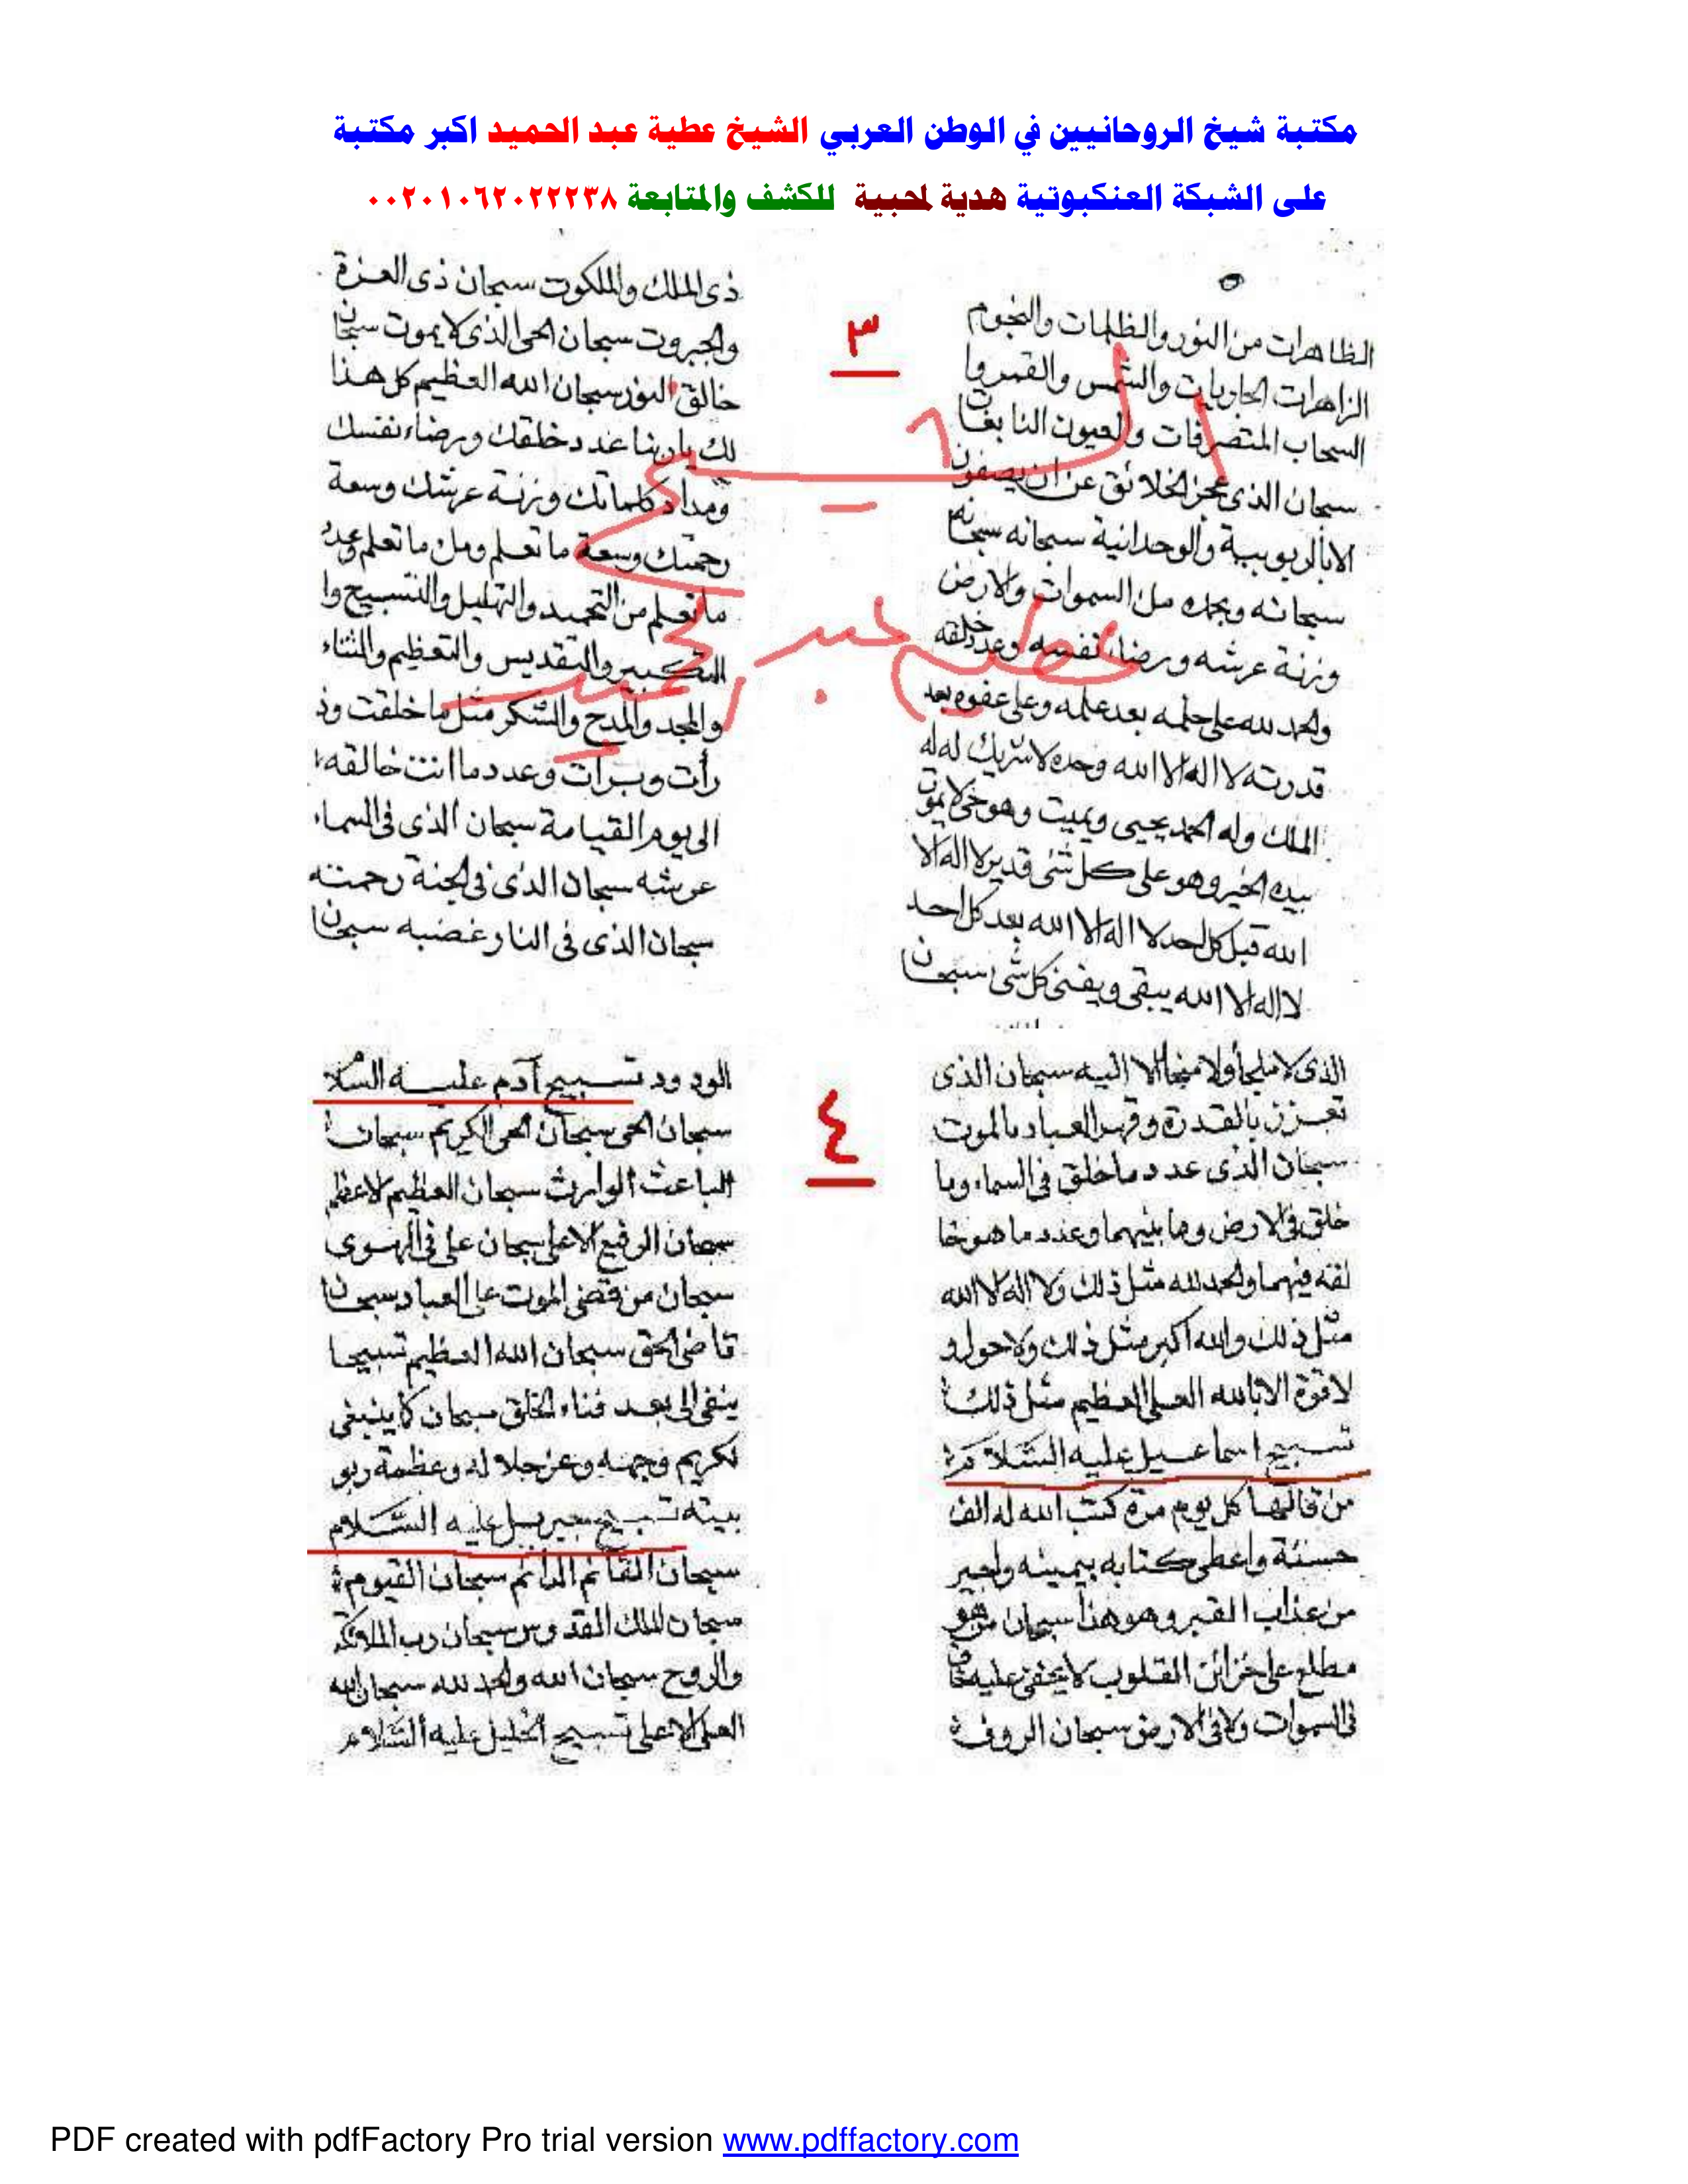 مكتبة شيخ الروحانيين في الوطن العربي الشيخ عطية عبد الحميد اكبر مكتبة
على الشبكة العنكبوتية هدية لمحبية للكشف والمتابعة ٠٠٢٠١٠٦٢٠٢٢٢٣٨
٣
الظاهرات من النور والظلمات والنجوم
الزاهرات الجاريات والشمس والقمر وا
السحاب المتصرفات والعيون النابعات
سبحان الذى عجز الخلائق عن ان يصفون
الا بالربوبية والوحدانية سبحانه سبحانه
سبحانه وبحمده مل السموات والارض
وزنة عرشه ورضاء نفسه وعدد خلقه
والحمد لله على حلمه بعد علمه وعلى عفوه بعد
قدرته لا اله الا الله وحده لا شريك له له
الملك وله الحمد يحيى ويميت وهو حى لا يموت
بيده الخير وهو على كل شئ قدير لا اله الا
الله قبل كل احد لا اله الا الله بعد كل احد
لا اله الا الله يبقى ويفنى كل شى سبحان
ذى الملك والملكوت سبحان ذى العزة
والجبروت سبحان الحى الذى لا يموت سبحان
خالق النور سبحان الله العظيم كل هذا
لك يا ربنا عدد خلقك ورضاء نفسك
ومداد كلماتك وزنة عرشك وسعة
رحمتك وسعة ما تعلم ومل ما تعلم وعدد
ما تعلم من التحميد والتهليل والتسبيح وا
التكبير والتقديس والتعظيم والثناء
والمجد والمدح والشكر مثل ما خلقت وذ
رأت وبرأت وعدد ما انت خالقه
الى يوم القيامة سبحان الذى فى السماء
عرشه سبحان الذى فى الجنة رحمته
سبحان الذى فى النار غضبه سبحان
٤
الذى لا ملجأ ولا منجا الا اليه سبحان الذى
تعزز بالقدرة وقهر العباد بالموت
سبحان الذى عدد ما خلق فى السماء وما
خلق فى الارض وما بينهما وعدد ما هو خا
لقه فيهما والحمد لله مثل ذلك ولا اله الا الله
مثل ذلك والله اكبر مثل ذلك ولا حول و
لا قوة الا بالله العلى العظيم مثل ذلك
تسبيح اسماعيل عليه السلام
من قالها كل يوم مرة كتب الله له الف
حسنة واعطى كتابه بيمينه واجير
من عذاب القبر وهو هذا سبحان من هو
مطلع على خزائن القلوب لا يخفى عليه
فى السموات ولا فى الارض سبحان الروف
الودود تسبيح آدم عليه السلام
سبحان الحى سبحان الحى الكريم سبحان
الباعث الوارث سبحان العظيم الاعظم
سبحان الرفيع الاعلى سبحان على فى الهوى
سبحان من قضى الموت على العباد سبحان
قاضى الحق سبحان الله العظيم تسبيحا
بعد فناء الخلق سبحان كما ينبغى
لكريم وجهه وعز جلاله وعظمة ربو
بيته تسبيح جبريل عليه السلام
سبحان القائم الدائم سبحان القيوم
سبحان الملك القدوس سبحان رب الملائكة
والروح سبحان الله والحمد لله سبحان الله
العلى الاعلى تسبيح الخليل عليه السلام
PDF created with pdfFactory Pro trial version www.pdffactory.com